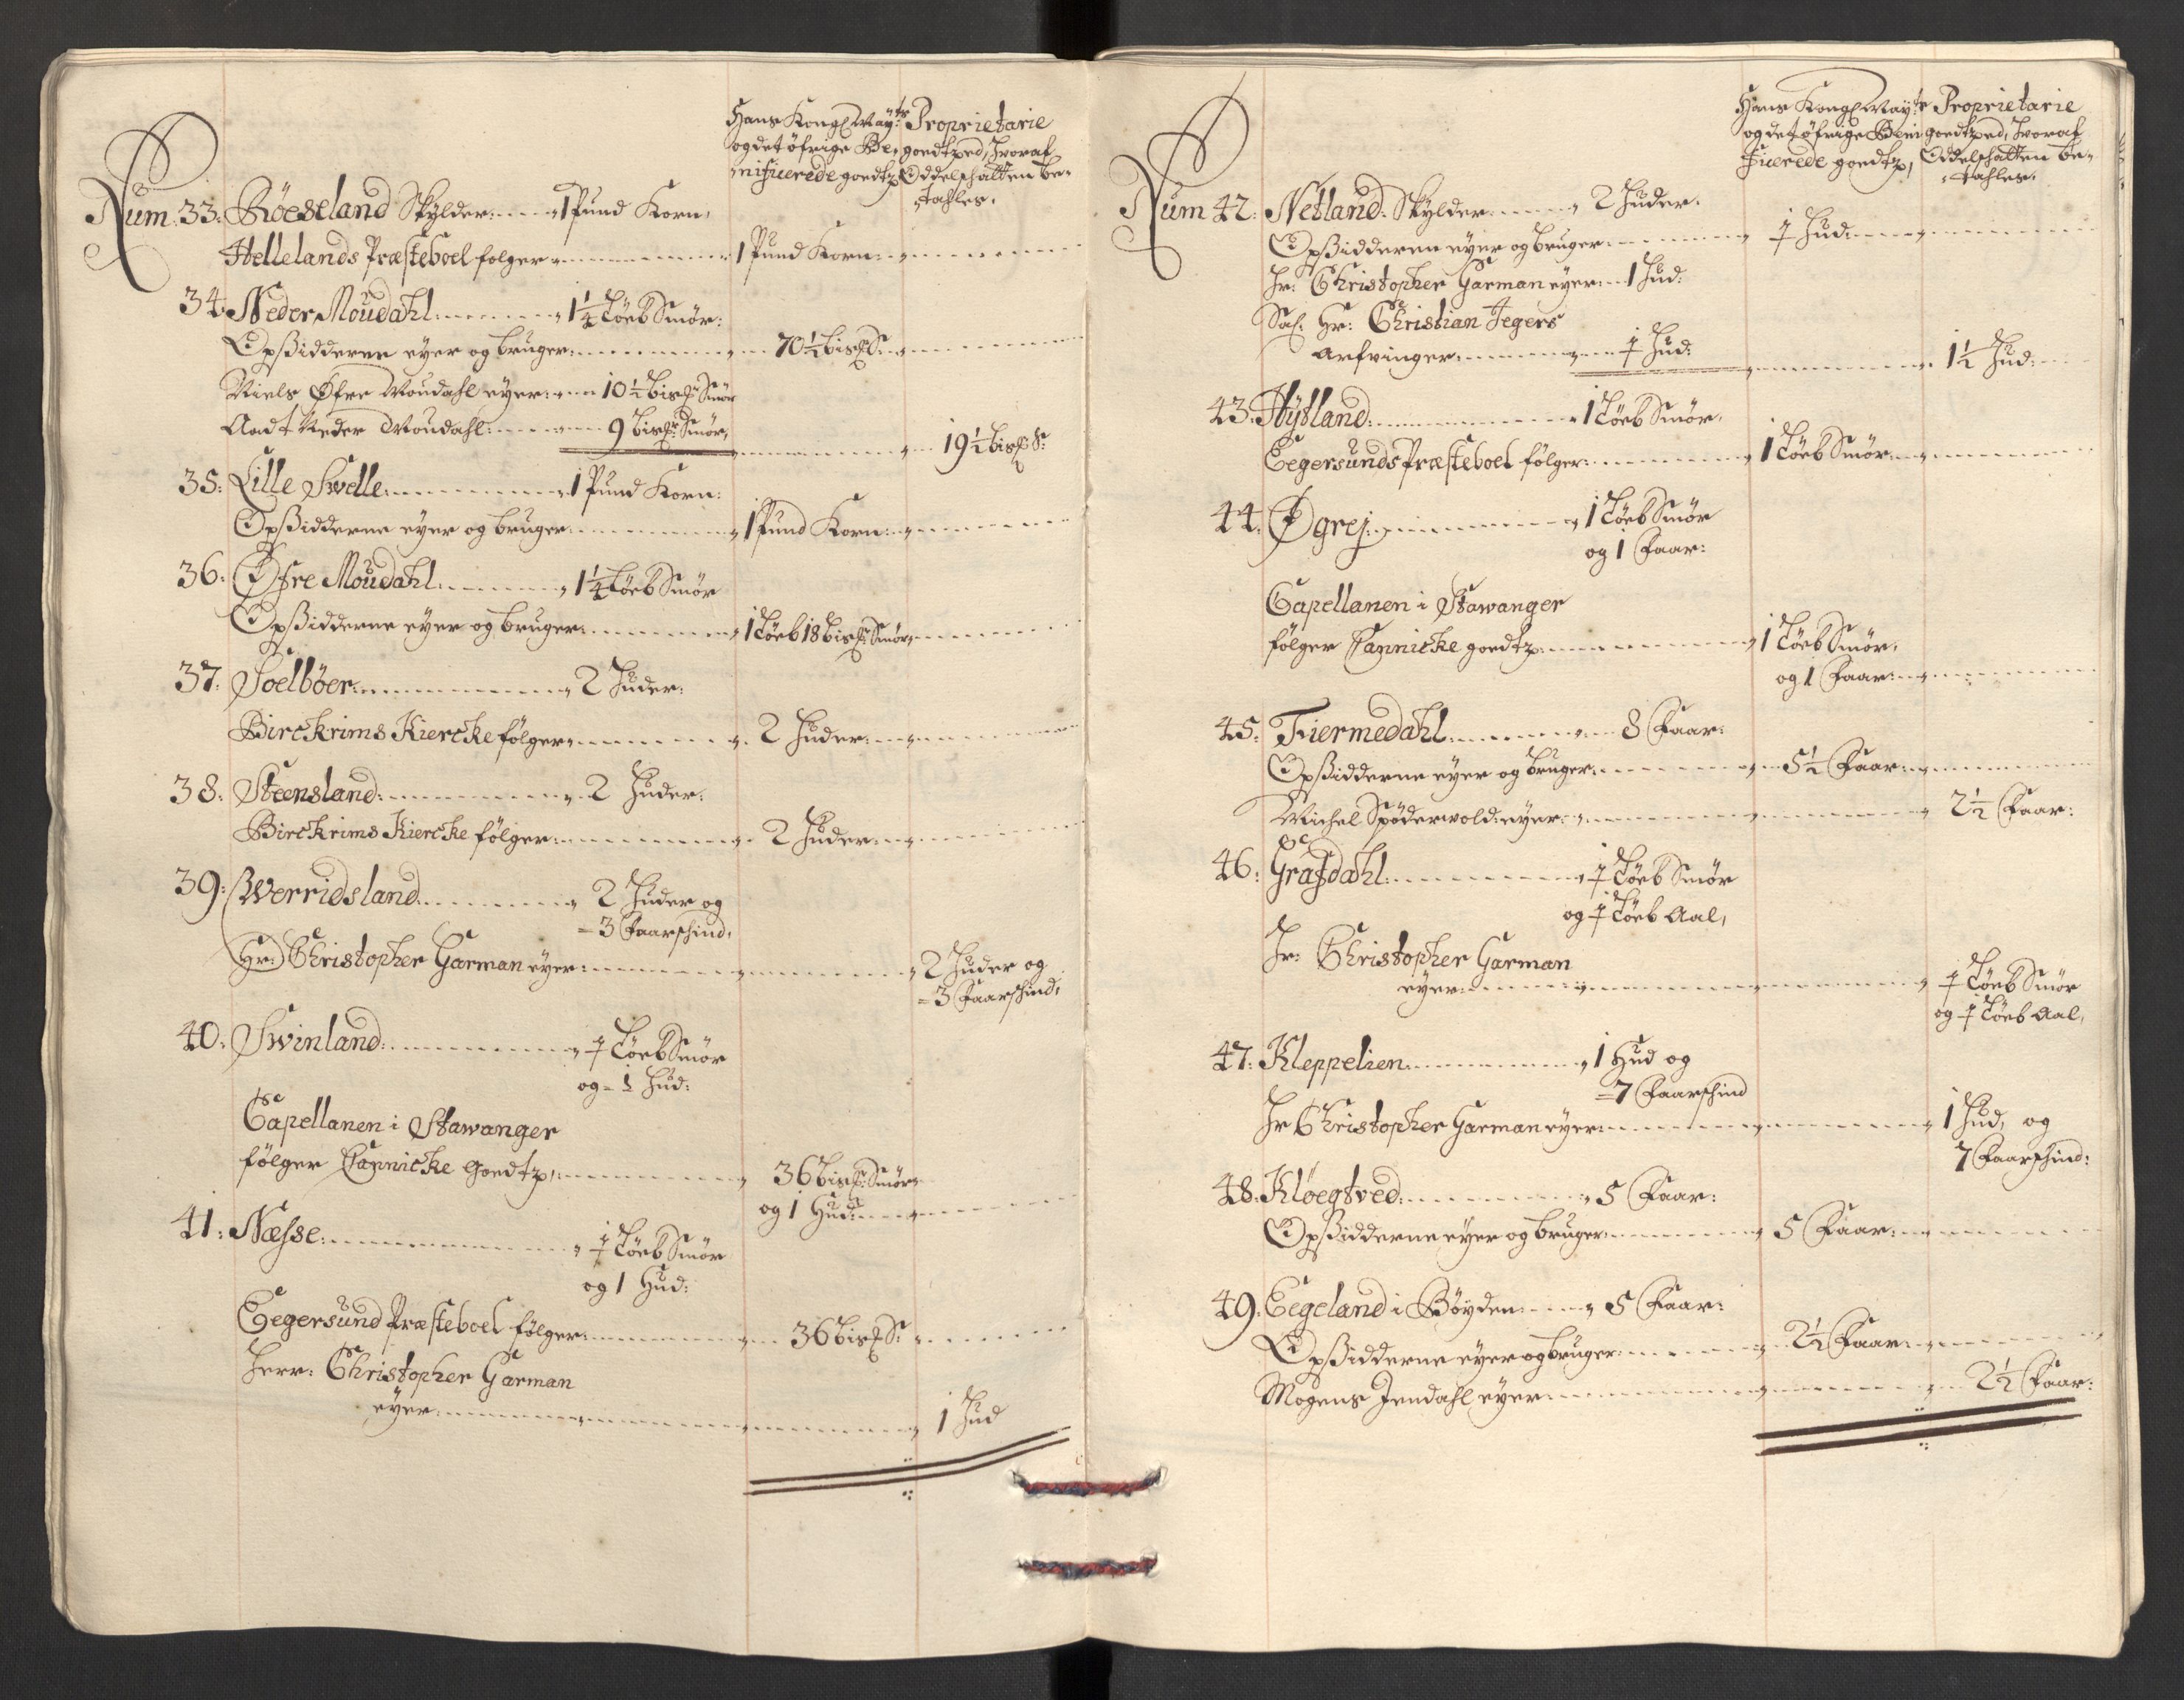 Hans Kongl Mayts Proprietarie
og det øfrige Be- goedtzed, hvoraf
nificerede goedtz Oddelschatten be-
tahles.
Num. 33: Röeseland Skylder: 1 Pund Korn:
Hellelands Præsteboel folger 1 Pund Korn:
34: Neder Moudahl: 1 1/4 Löeb Smör:
Opsidderne eyer og bruger: 70 1/2 bisp S:
Niels Øfre Moudahl eyer: 10 1/2 bisp: Smör
Aadt Neder Moudahl: 9 bisp: Smör, 19 1/2 bisp S:
35: Lille Svelle: 1 Pund Korn:
Opsidderne eyer og bruger: 1 Pund Korn:
36: Øfre Moudahl: 1 1/4 Löeb Smör
Opsidderne eyer og bruger: 1 Löeb 18 bisp: Smör
37: Soelböer: 2 Huder:
Birckrims Kiercke følger 2 Huder:
38: Steensland: 2 Huder:
Birckrims Kiercke følger: 2 Huder:
39: Werridsland: 2 Huder og
3 Faarschind,
Hr: Christopher Garman eyer: 2 Huder og
3 Faarschind,
40: Svinland: 1/2 Löeb Smör
og 1 Hud:
Capellanen i Stawanger
følger Fannicke Goedtz: 36 bisp: Smör
og 1 Hud:
41: Næsse: 1/2 Löeb Smör
og 1 Hud:
Eegersund Præsteboel følger: 36 bisp S:
Herr: Christopher Garman
eyer: 1 Hud
Hans Kongl Mayts Proprietarie
og det øfrige Beni goedtzed, hvoraf
ficerede goedtz, Oddelschatten be-
tahles.
Num 42: Netland: Skylder: 2 Huder.
Opsidderen eyer og bruger: 1/2 Hud:
Hr: Christopher Garman eyer: 1 Hud:
Sal: Hr: Christian Jegers
arfvinger: 1/2 Hud: 1 1/2 Hud:
43: Hytland: 1 Löeb Smör,
Eegersunds Præsteboel følger: 1 Löeb Smör:
44: Øgrej: 1 Löeb Smör
og 1 Faar:
Capellanen i Stawanger
følger Fannicke goedtz: 1 Löeb Smör,
og 1 Faar:
45: Tiermedahl: 8 Faar:
Opsidderne eyer og bruger: 5 1/2 Faar:
Michel Spöderwold: eyer: 2 1/2 Faar:
46: Grafdahl: 1/2 Löeb Smör
og 1/2 Löeb Aal,
Hr: Christopher Garman
eyer: 1/2 Löeb Smör
og 1/2 Löeb Aal,
47: Kleppelien: 1 Hud og
7 Faarschind
Hr Christopher Garman eyer: 1 Hud, og
7 Faarschind:
48: Klöegtved: 5 Faar:
Opsidderne eyer og bruger: 5 Faar:
49: Eegeland i Böyden: 5 Faar:
Opsidderne eyer og bruger: 2 1/2 Faar:
Mogens Jendahl eyer: 2 1/2 Faar: